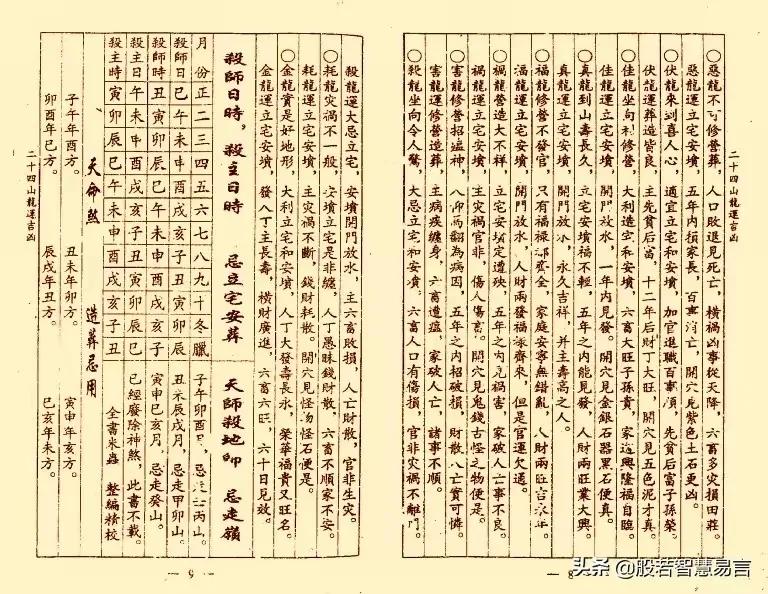 二十四山龍運吉凶
〇惡龍不可修營葬，人口敗退見死亡，橫禍凶事從天降，六畜多災損田莊。
惡龍運立宅安墳，五年內損家長，百事消亡，開穴見紫色土石更凶。
〇伏龍來到喜人心，適宜立宅和安墳，加官進職百事順，先貧后富子孫榮。
伏龍運葬造皆良。主先貧后富，十二年后財丁大旺，開穴見五色泥才真。
〇佳龍坐向利修營，大利造宅和安墳，六畜大旺子孫貴，家道興隆福自臨。
佳龍運立宅安墳，開門放水，一年內見發。開穴見金銀石器黑石便真。
〇真龍到山壽長久，立宅安墳福不輕，五年之內能見發，人財兩旺業大興。
真龍運立宅安墳，開門放水，永久吉祥，并主壽高之人。
〇福龍修營不發官，只有福祿齊全，家庭安寧無錯亂，人財兩旺吉永年。
福龍運立宅安墳，開門放水，人財兩發福祿齊來，但是官運欠通。
〇禍龍營造大不祥，立宅安墳定遭殃，五年之內見禍害，家破人亡事不良。
禍龍運立宅安墳，主災禍官非，傷人傷畜。開穴見鬼錢古怪之物便是。
〇害龍修營招瘟神，翻為病因，五年之內招破損，財散人亡實可憐。
害龍運修營造葬，主病疾纏身，六畜遭瘟，家破人亡，諸事不順。
〇殺龍坐向令人驚，大忌立宅和安墳，六畜人口有傷損，官非災禍不離門。
— 8
殺龍運大忌立宅，安墳開門放水，主六畜敗損，人亡財散，官非生災。
〇耗龍災禍不一般，安墳立宅是非纏，人丁愚昧錢財散，六畜不順家不安。
耗龍運立宅安墳，主災禍不斷，錢財耗散。開穴見怪湯怪石便是。
〇金龍實是好地形，大利立宅和安墳，人丁大發壽長永，榮華福貴又旺名。
金龍運立宅安墳，發人丁主長壽，橫財廣進，六畜六旺，六十日見效。
殺師日時，殺主日時　忌立宅安葬
天師殺地師　忌走嶺
月份正二三四五六七八九十冬臘
殺師日巳午未申酉戌亥子丑寅卯辰
殺師時丑寅卯辰巳午未申酉戌亥子
殺主日午未申酉戌亥子丑寅卯辰巳
殺主時寅卯辰巳午未申酉戌亥子丑
子午卯酉月，忌走壬丙山。
丑未辰戌月，忌走甲卯山。
寅申巳亥月，忌走癸山。
已經廢除神煞，此書不載。
全書米蟲　整編精校
天命煞　造葬忌用
子午年酉方。　丑未年卯方。　寅申年亥方。
卯酉年巳方。　辰戌年丑方。　巳亥年未方。
二十四山龍運吉凶
— 9 —
头条 @般若智慧易言